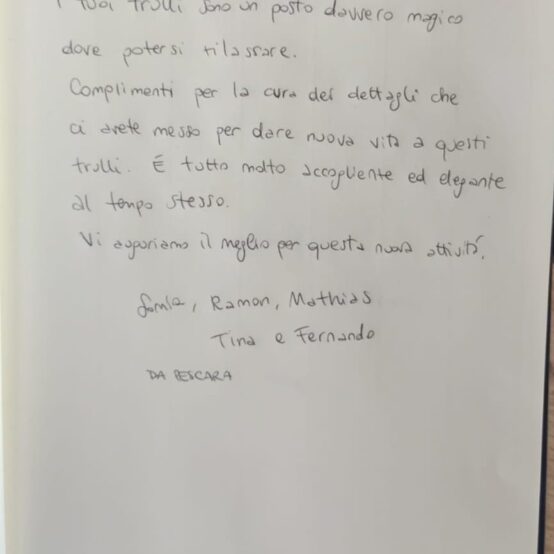 I tuoi trulli sono un posto davvero magico
dove potersi rilassare.
Complimenti per la cura dei dettagli che
ci avete messo per dare nuova vita a questi
trulli. É tutto molto accogliente ed elegante
al tempo stesso.
Vi auguriamo il meglio per questa nuova attività.
Sonia, Ramon, Mathias
Tina e Fernando
DA PESCARA